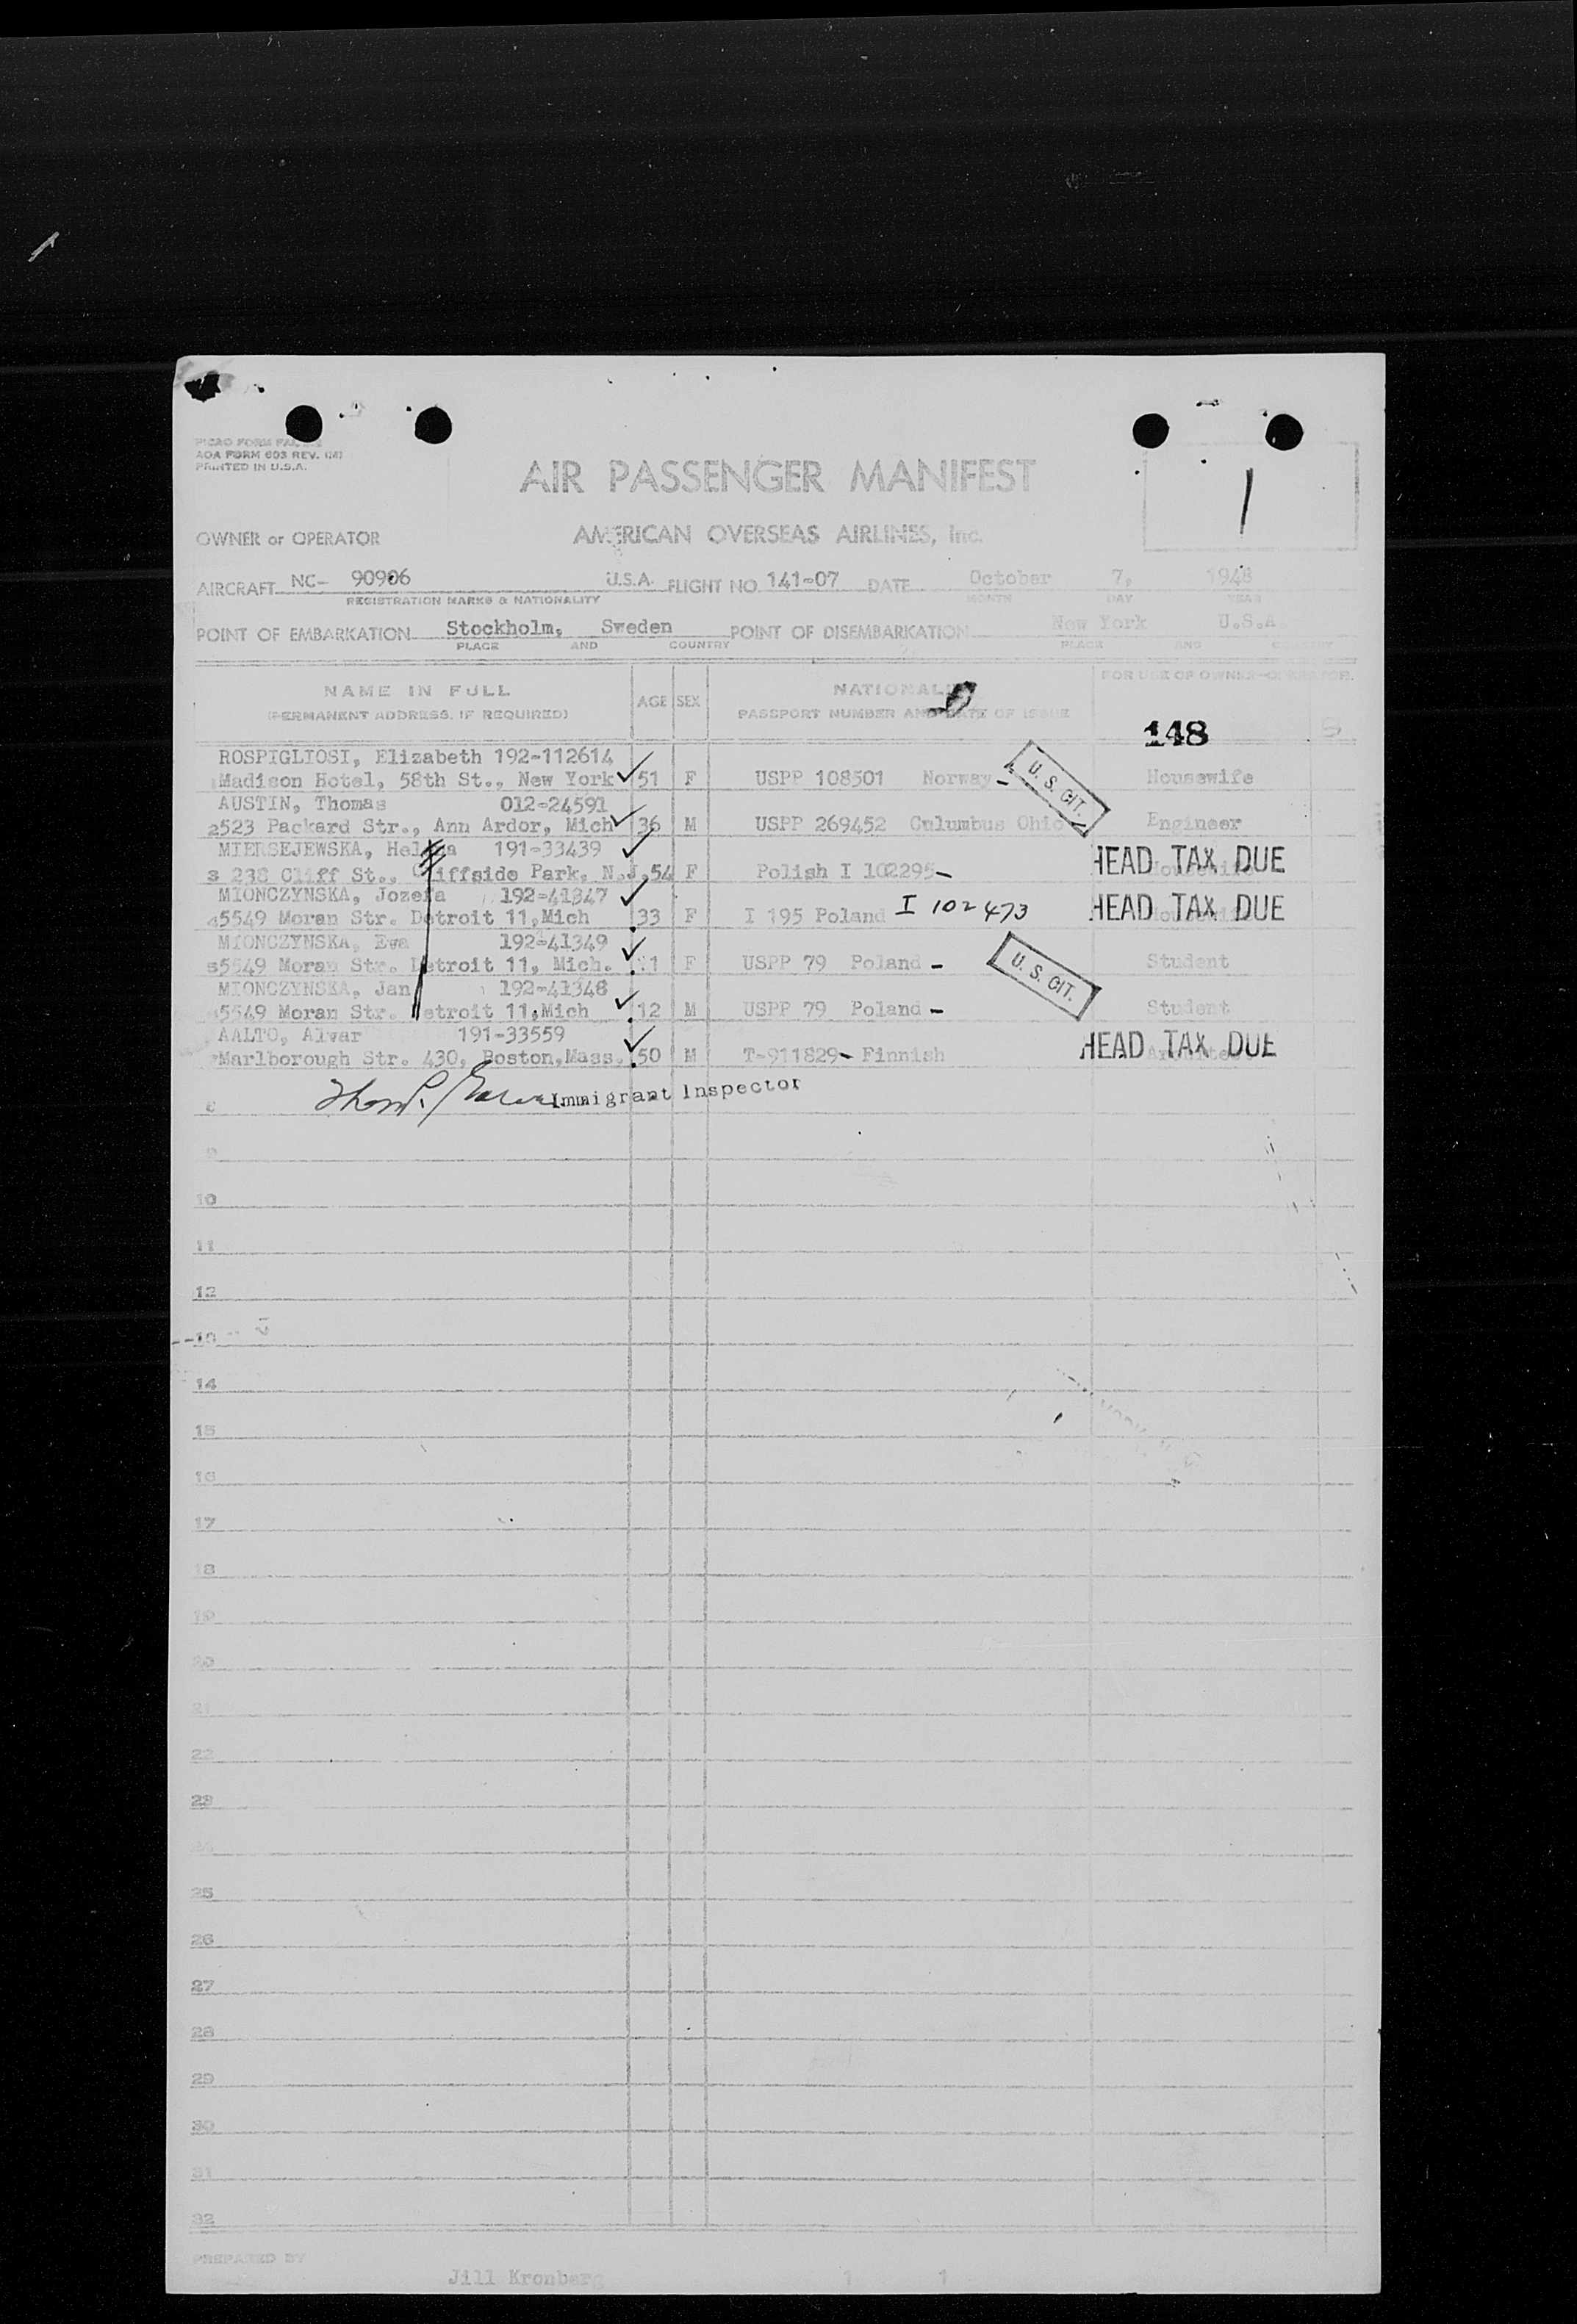 AOA FORM 603 REV. (M)
PRINTED IN U.S.A.
AIR PASSENGER MANIFEST
1
OWNER or OPERATOR AMERICAN OVERSEAS AIRLINES, Inc.
AIRCRAFT NC- 90906 U.S.A. FLIGHT NO. 141-07 DATE October 7, 1948
REGISTRATION MARKS & NATIONALITY MONTH DAY YEAR
POINT OF EMBARKATION Stockholm, Sweden POINT OF DISEMBARKATION New York U.S.A.
PLACE AND COUNTRY PLACE AND COUNTRY
NAME IN FULL AGE SEX NATIONALITY FOR USE OF OWNER-OPERATOR
(PERMANENT ADDRESS, IF REQUIRED) PASSPORT NUMBER AND DATE OF ISSUE
148
ROSPIGLIOSI, Elizabeth 192-112614
Madison Hotel, 58th St., New York 51 F USPP 108501 Norway - U. S. CIT. Housewife
AUSTIN, Thomas 012-24591
2523 Packard Str., Ann Ardor, Mich 36 M USPP 269452 Culumbus Ohio Engineer
MIERSEJEWSKA, Helena 191-33439
3 238 Cliff St., Cliffside Park, N.J. 54 F Polish I 102295- HEAD TAX DUE
MIONCZYNSKA, Jozefa 192-41347
5549 Moran Str. Detroit 11, Mich 33 F I 195 Poland I 102473 HEAD TAX DUE
MIONCZYNSKA, Ewa 192-41349
5 5549 Moran Str. Detroit 11, Mich. 11 F USPP 79 Poland - U. S. CIT. Student
MIONCZYNSKA, Jan 192-41348
5549 Moran Str. Detroit 11, Mich 12 M USPP 79 Poland - Student
AALTO, Alvar 191-33559
Marlborough Str. 430, Boston, Mass. 50 M T-911829- Finnish HEAD TAX DUE
8 Immigrant Inspector
9
10
11
12
13
14
15
16
17
18
19
20
21
22
23
24
25
26
27
28
29
30
31
32
PREPARED BY
Jill Kronberg 1 1